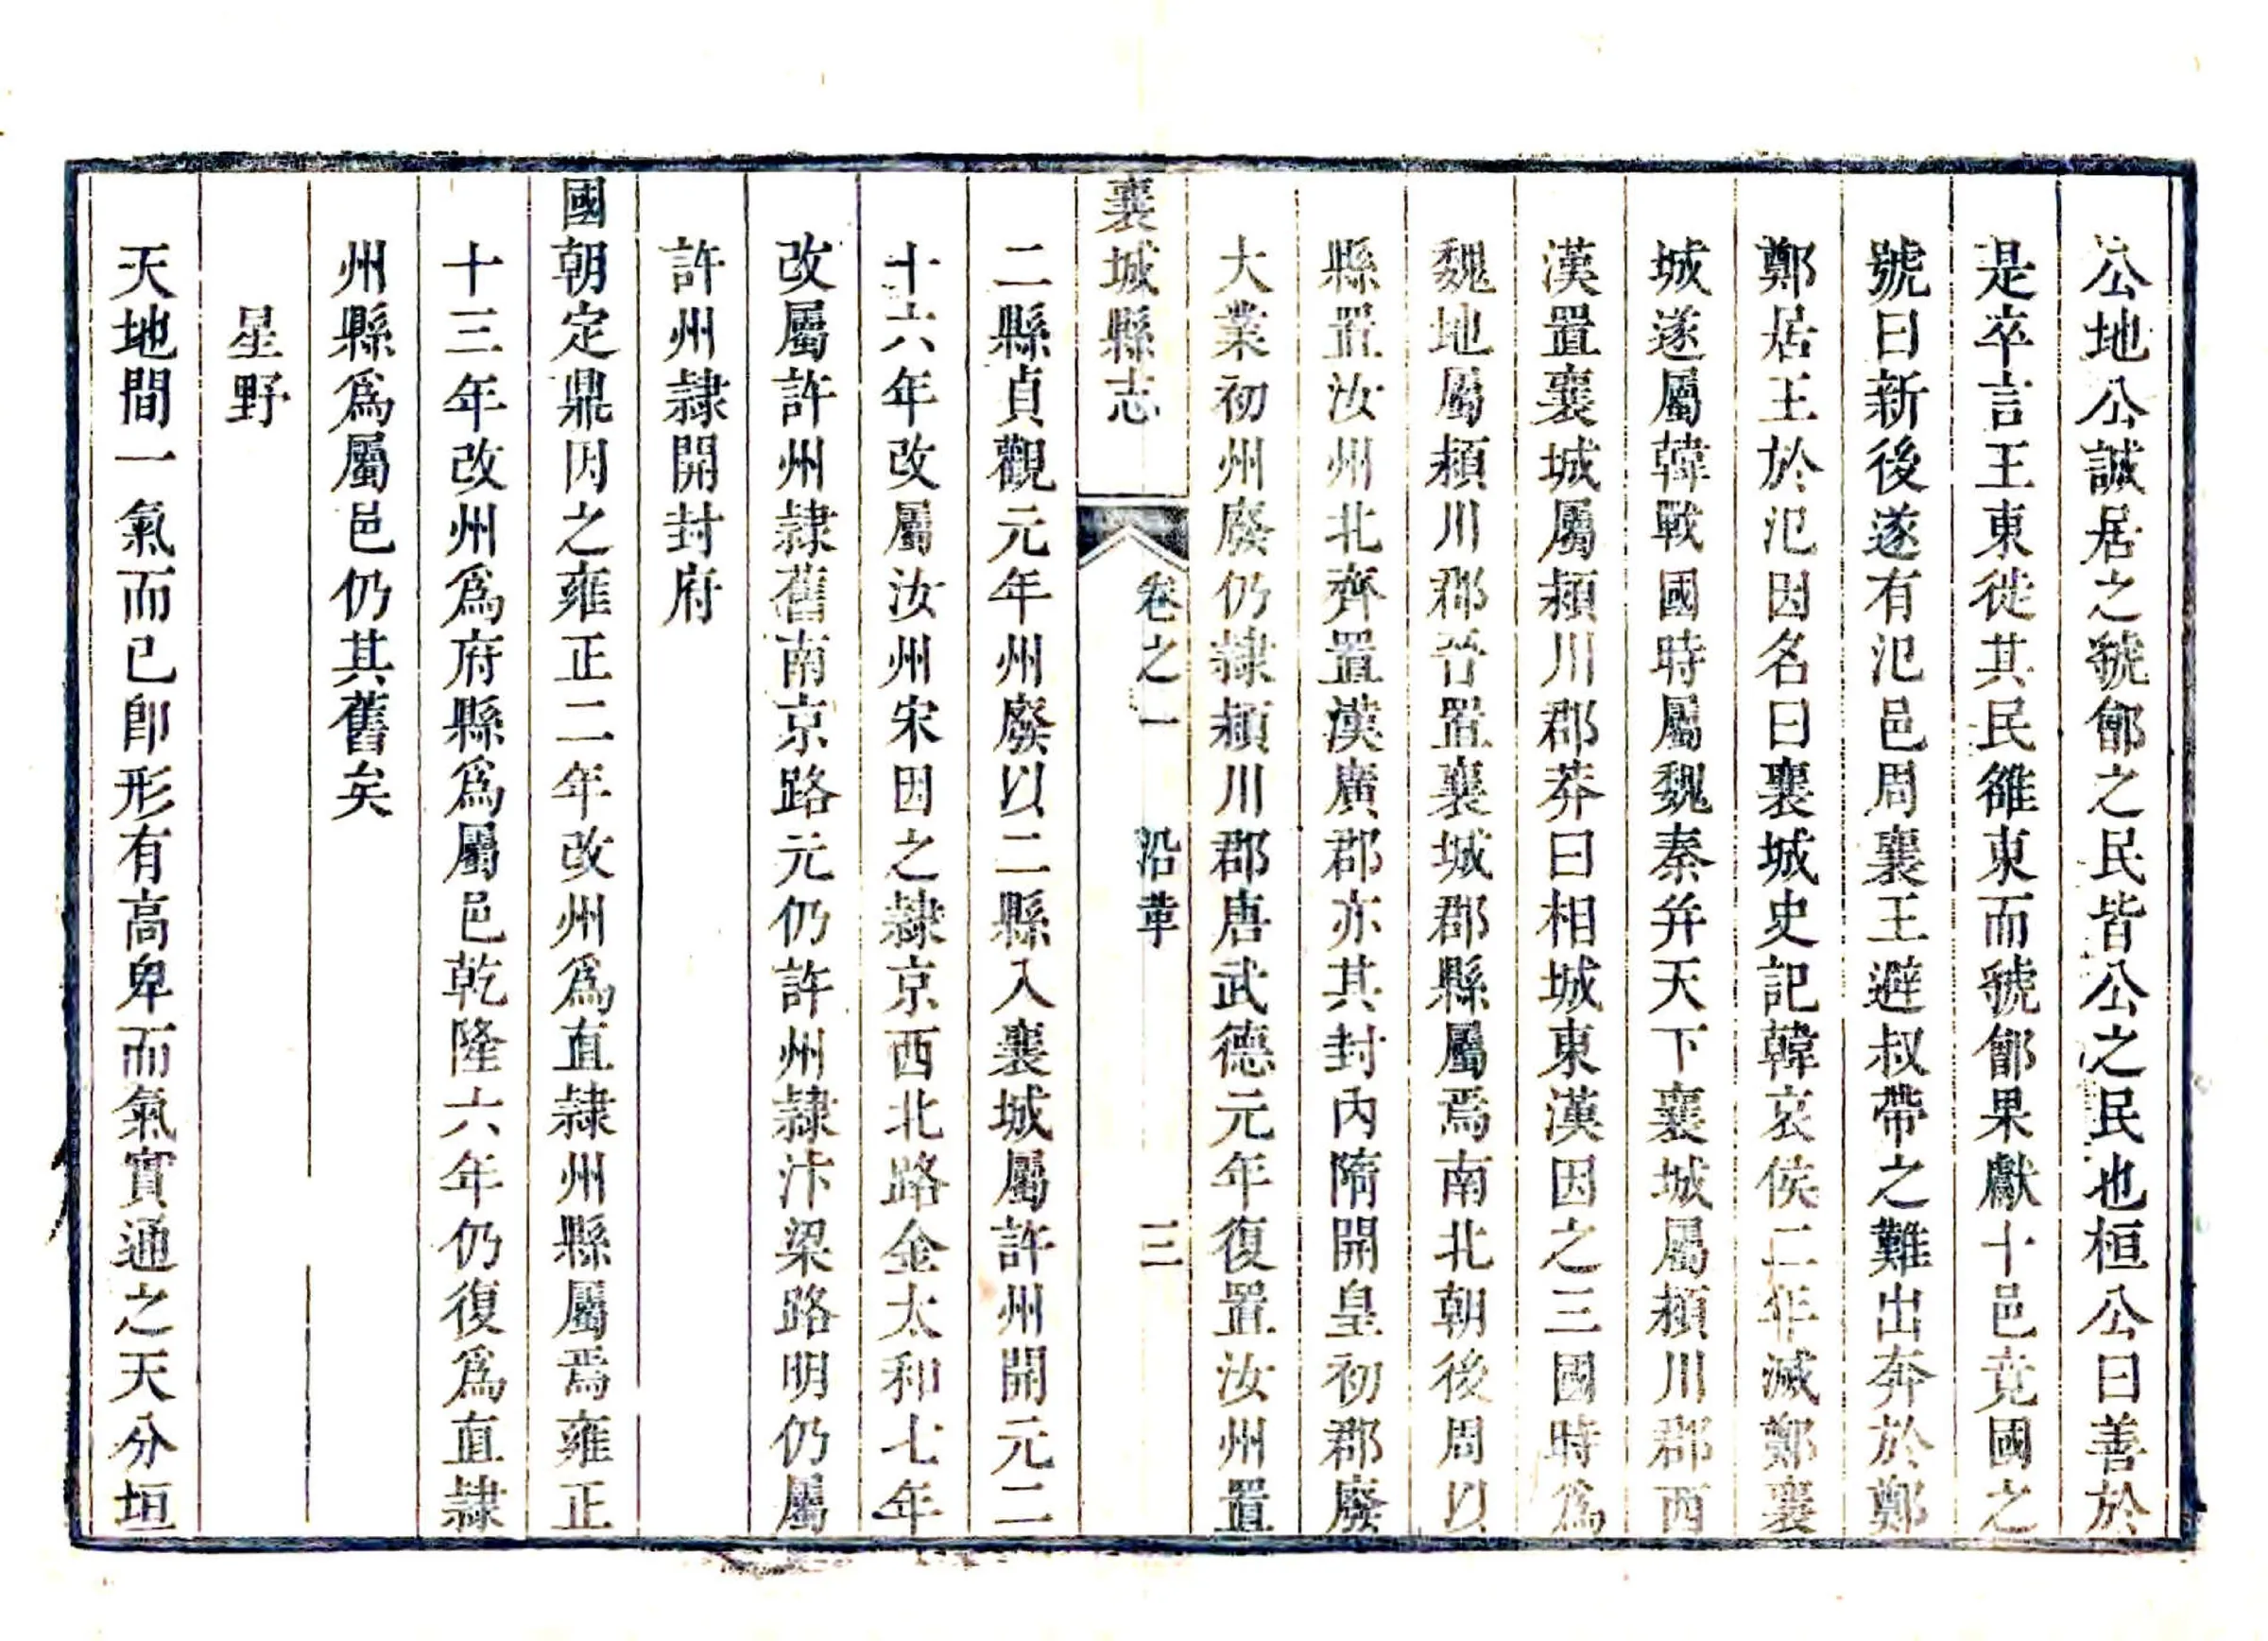 公地公誠居之虢鄶之民皆公之民也桓公曰善於
是卒言王東徙其民雒東而虢鄶果獻十邑竟國之
號曰新後遂有氾邑周襄王避叔帶之難出奔於鄭
鄭居王於氾因名曰襄城史記韓哀侯二年滅鄭襄
城遂屬韓戰國時屬魏秦并天下襄城屬潁川郡西
漢置襄城屬潁川郡莽曰相城東漢因之三國時爲
魏地屬潁川郡晉置襄城郡縣屬焉南北朝後周以
縣置汝州北齊置漢廣郡亦其封內隋開皇初郡廢
大業初州廢仍隸潁川郡唐武德元年復置汝州置
襄城縣志 卷之一 沿革 三
二縣貞觀元年州廢以二縣入襄城屬許州開元二
十六年改屬汝州宋因之隸京西北路金太和七年
改屬許州隸舊南京路元仍許州隸汴梁路明仍屬
許州隸開封府
國朝定鼎因之雍正二年改州爲直隸州縣屬焉雍正
十三年改州爲府縣爲屬邑乾隆六年仍復爲直隸
州縣爲屬邑仍其舊矣
星野
天地間一氣而已卽形有高卑而氣實通之天分垣